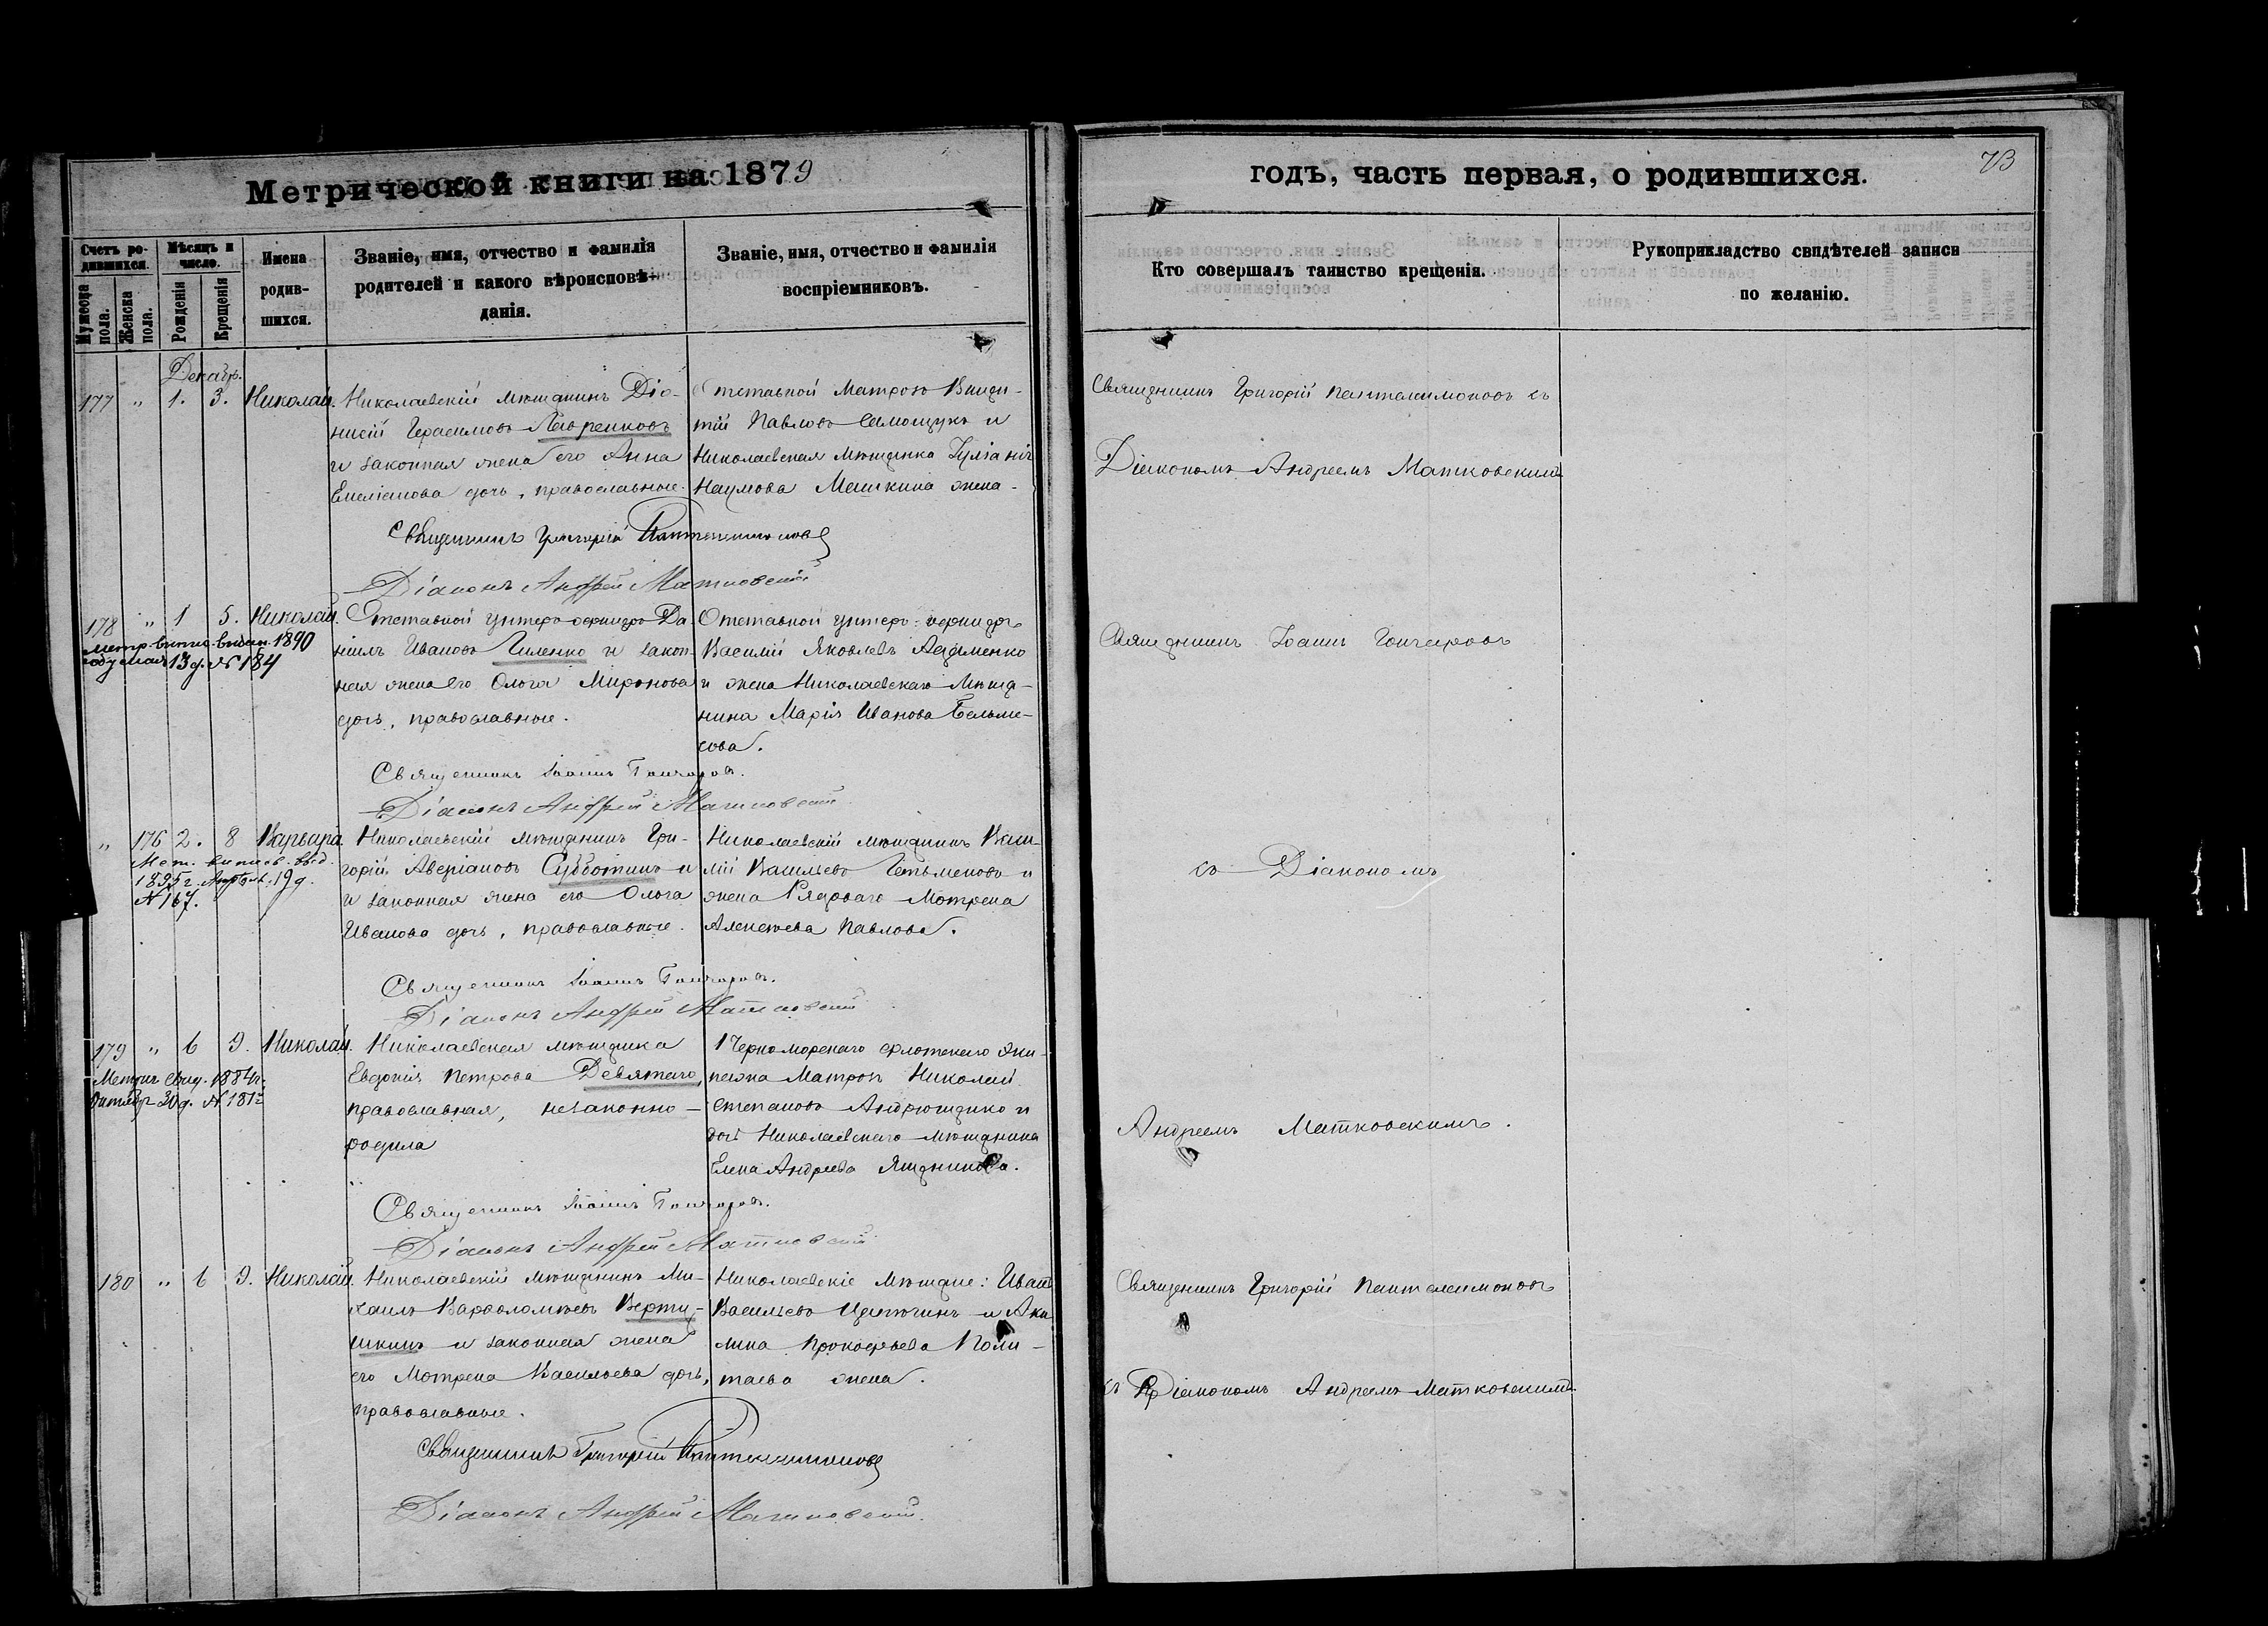 Метрической книги на 1879
годъ, часть первая, о родившихся.
73
Счетъ ро-
дившихся.
Мужеска пола.
Женска пола.
Мѣсяцъ и
число.
Рожденія
Крещенія
Имена
родив-
шихся.
Званіе, имя, отчество и фамилія
родителей и какого вѣроисповѣ-
данія.
Званіе, имя, отчество и фамилія
воспріемниковъ.
Кто совершалъ таинство крещенія.
Рукоприкладство свидѣтелей записи
по желанію.
Декабр.
177 " 1. 3. Николай.
Николаевскій мѣщанинъ Діо-
нисій Герасимовъ Лавренковъ
и законная жена его Анна
Емеліанова дочь, православные.
Отставной Матросъ
Павловъ Самощукъ и
Николаевская мѣщанка Іуліанія
Наумова Машкина жена.
Священникъ Григорій Пантелеимоновъ съ
Діакономъ Андреемъ Матковскимъ
Священникъ Григорій Пантелеимоновъ
Діаконъ Андрей Матковскій
178 " 1 5. Николай.
метр. випис. видан. 1890
году мая 13 д. № 184
Отставной унтеръ-офицеръ Да-
ніилъ Ивановъ Гиленко и закон-
ная жена его Ольга Миронова
дочь, православные.
Отставной унтеръ-офицеръ
Василій Яковлевъ
и жена Николаевскаго Мѣща-
нина Марія Иванова Бельме-
сова.
Священникъ Іоаннъ Гончаровъ
Священникъ Іоаннъ Гончаровъ.
Діаконъ Андрей Матковскій
" 176 2. 8 Варвара.
Мет. випись выд.
1895 г. Апрѣля 19 д.
№ 167.
Николаевскій мѣщанинъ Гри-
горій Аверіановъ Субботинъ и
и законная жена его Ольга
Иванова дочь, православные.
Николаевскій мѣщанинъ Васи-
лій Васильевъ Гетьменовъ и
жена Рядоваго Мотрена
Алексѣева Павлова.
съ Діакономъ
Священникъ Іоаннъ Гончаровъ.
Діаконъ Андрей Матковскій
179 " 6 9. Николай.
Метрич. свид. 1884 г.
30 д. № 181
Николаевская мѣщанка
Евдокія Петрова Девятаго,
православная, незаконно-
родила
1 Черноморскаго флотскаго эки-
пажа Матросъ Николай
Степановъ Андрющенко и
дочь Николаевскаго мѣщанина
Елена Андреева Ящникова.
Андреемъ Матковскимъ.
Священникъ Іоаннъ Гончаровъ.
Діаконъ Андрей Матковскій
180 " 6 9. Николай.
Николаевскій мѣщанинъ Ми-
хаилъ Варфоломѣевъ Верти-
шкинъ и законная жена
его Мотрена Васильева дочь,
православные.
Николаевскіе мѣщане: Иванъ
Васильевъ и Аки-
лина Прокофьева Поли-
таева жена.
Священникъ Григорій Пантелеимоновъ
съ Діакономъ Андреемъ Матковскимъ.
Священникъ Григорій Пантелеимоновъ
Діаконъ Андрей Матковскій.